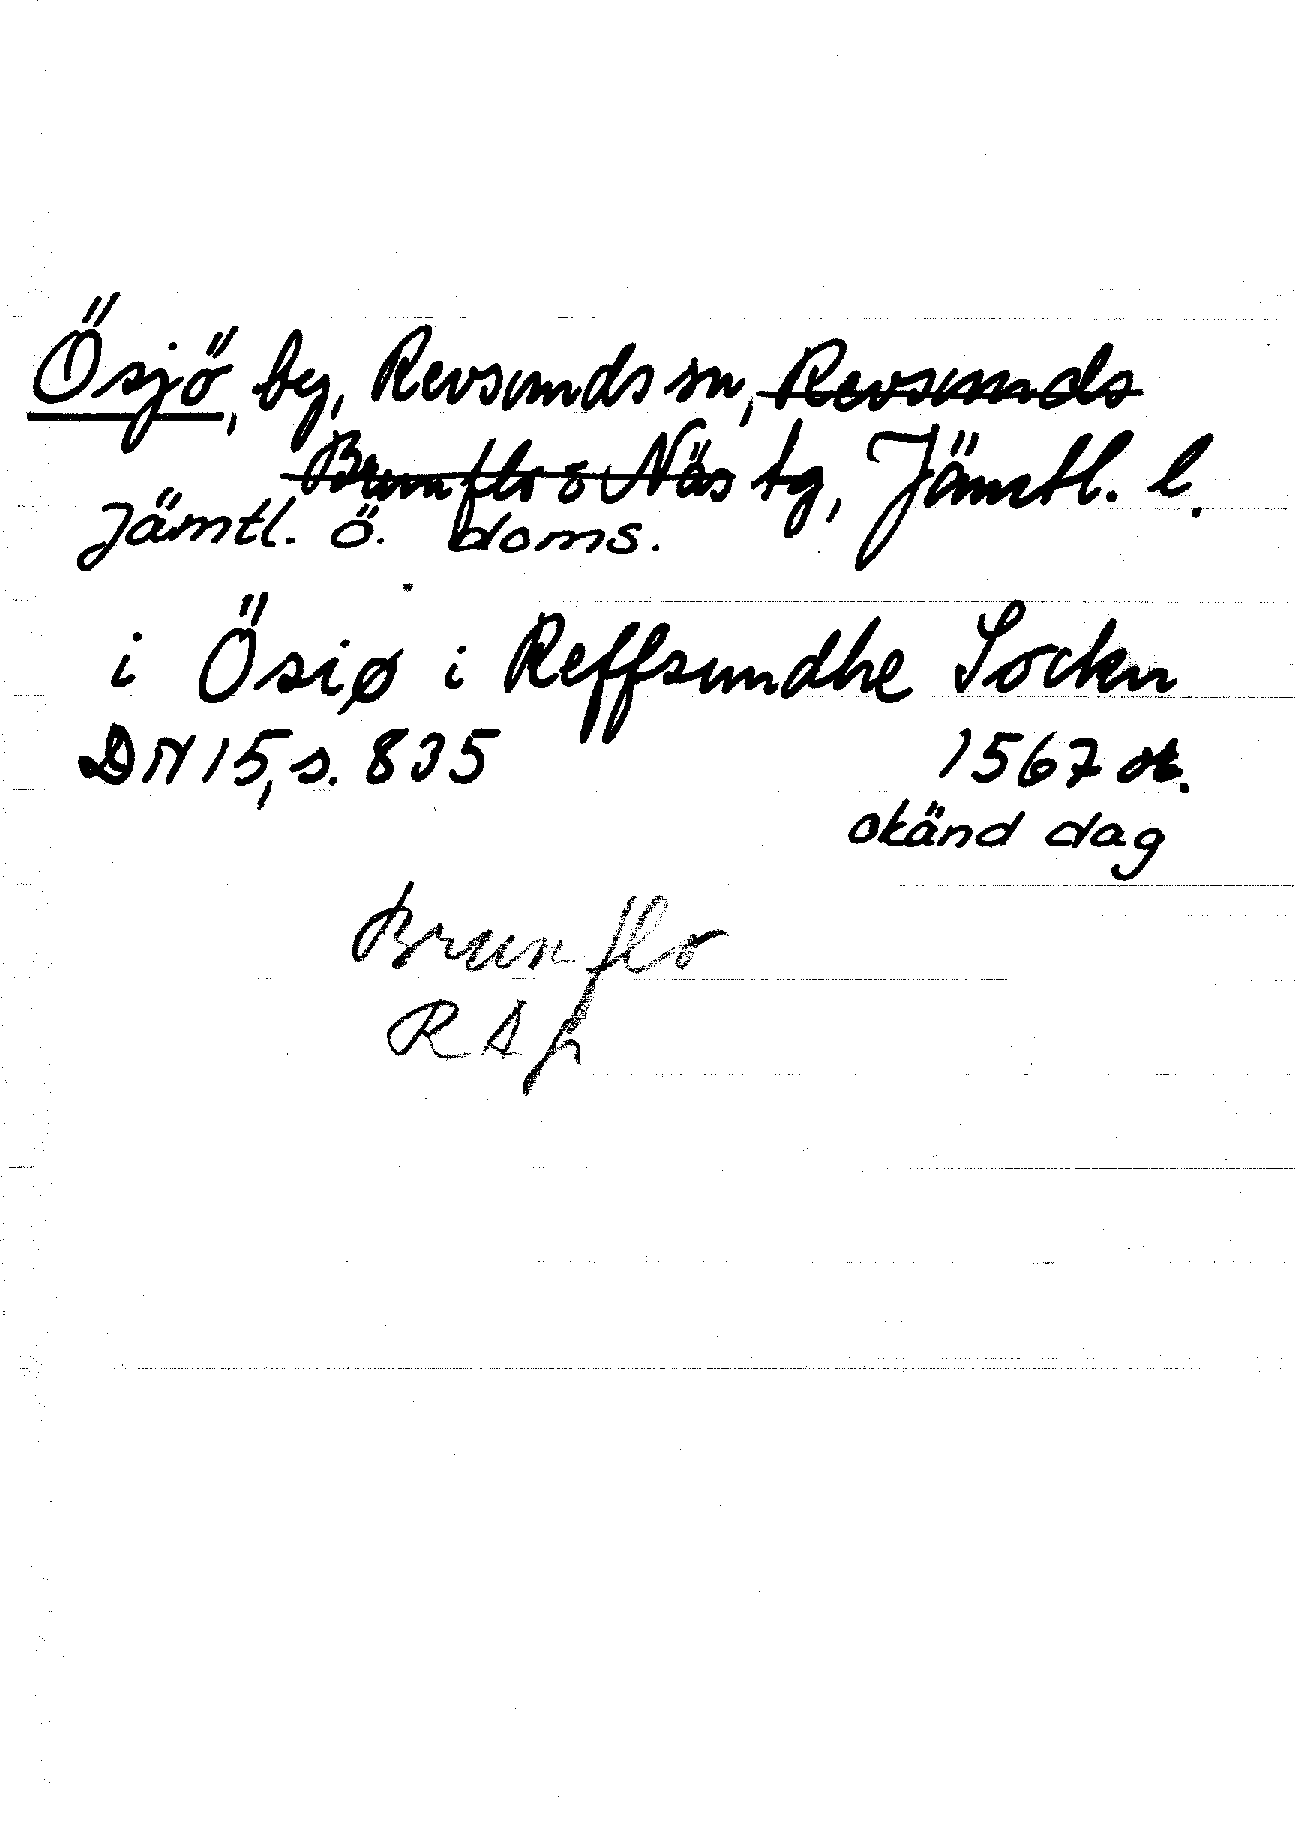 Ösjö, by, Revsunds sn, Revsunds
Brunflo o Näs tg, Jämtl. l.
Jämtl. ö. doms.
i Ösiø i Reffsundhe Sockn
DN 15, s. 835 1567 or.
okänd dag
Brunflo
RAL